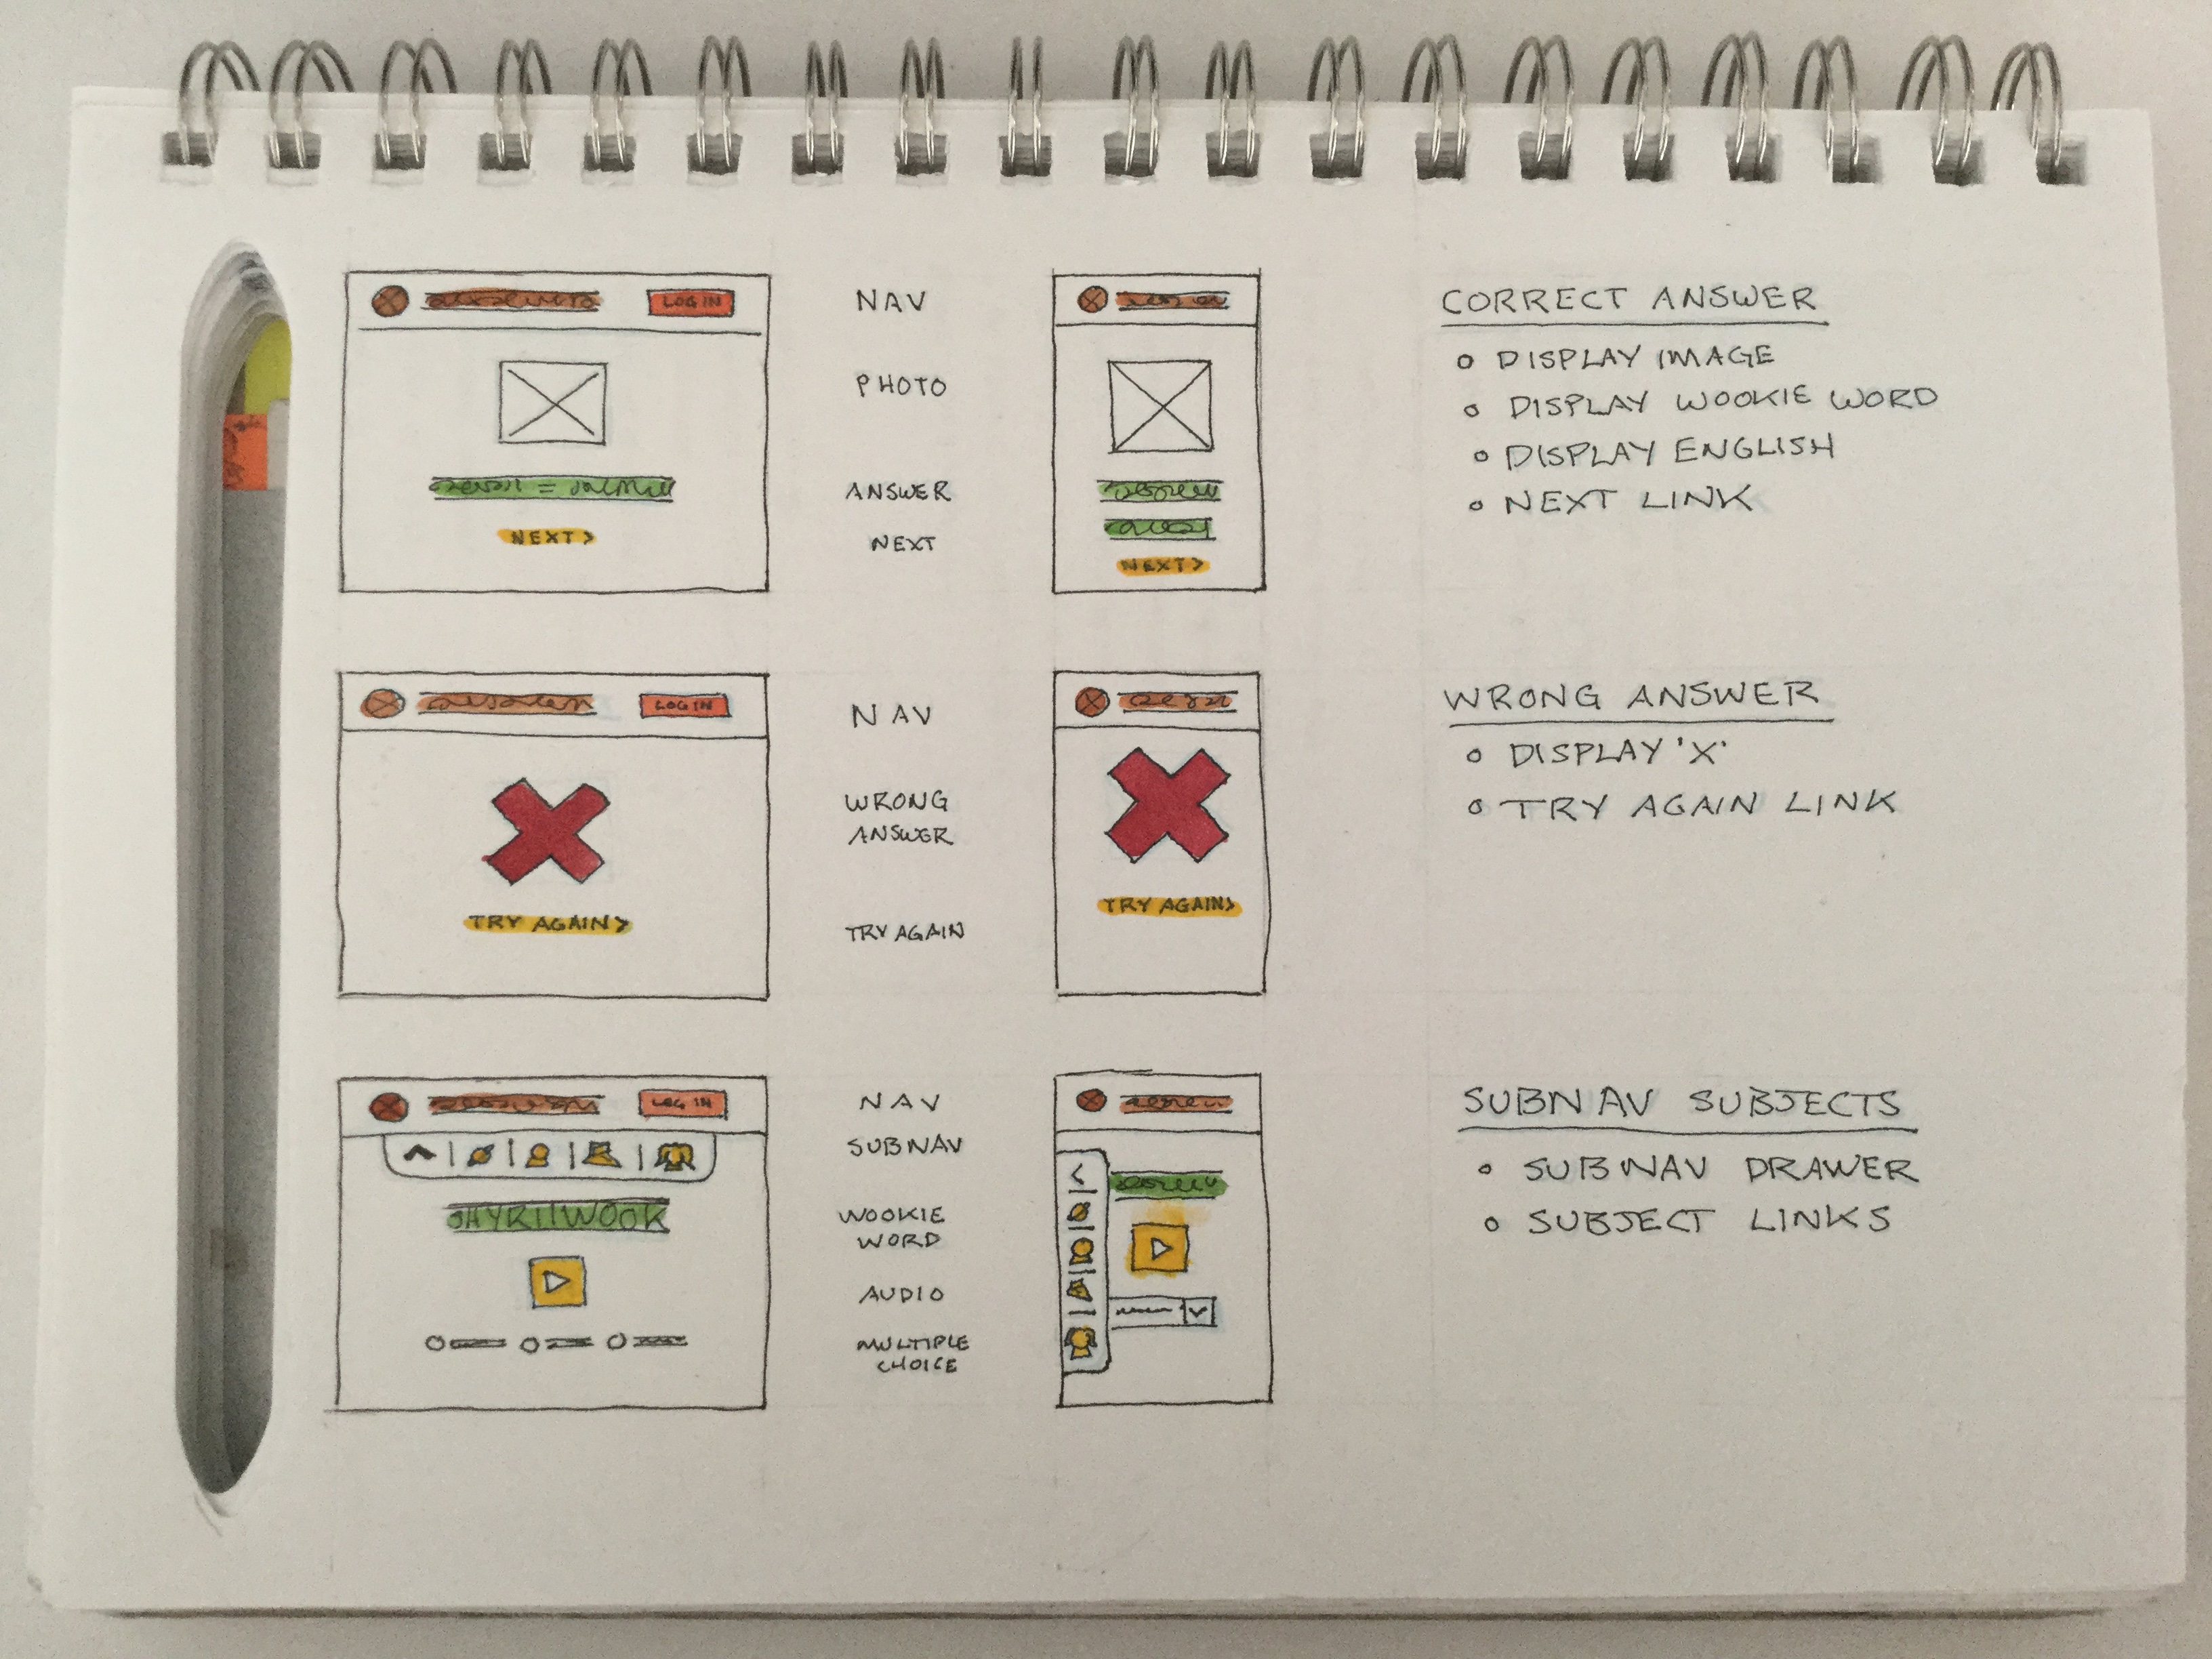 LOG IN
NEXT >
NAV
PHOTO
ANSWER
NEXT
NEXT >
CORRECT ANSWER
DISPLAY IMAGE
DISPLAY WOOKIE WORD
DISPLAY ENGLISH
NEXT LINK
LOG IN
TRY AGAIN >
NAV
WRONG
ANSWER
TRY AGAIN
TRY AGAIN >
WRONG ANSWER
DISPLAY 'X'
TRY AGAIN LINK
LOG IN
NAV
SUBNAV
WOOKIE
WORD
AUDIO
MULTIPLE
CHOICE
SUBNAV SUBJECTS
SUBNAV DRAWER
SUBJECT LINKS